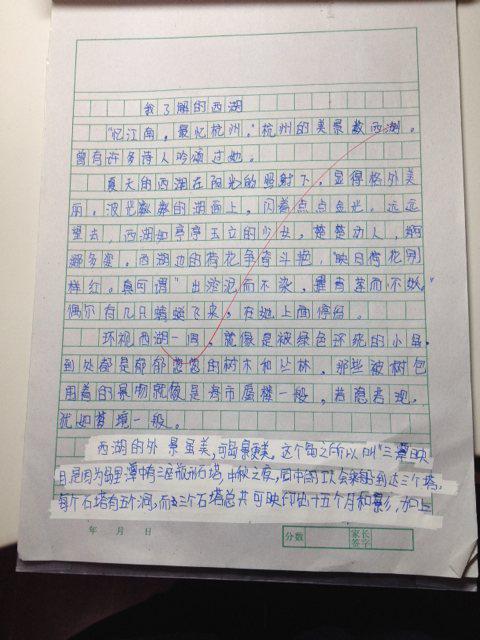 我了解的西湖
"忆江南，最忆杭州。"杭州的美景数西湖。
曾有许多诗人吟颂过她。
夏天的西湖在阳光的照射下，显得格外美
丽。波光粼粼的湖面上，闪着点点金光。远远
望去，西湖如亭亭玉立的少女，楚楚动人，婀
娜多姿。西湖边的荷花争奇斗艳，"映日荷花别
样红。真可谓"出淤泥而不染，濯清莲而不妖。"
偶尔有几只蜻蜓飞来，在她上面停留。
环视西湖一周，就像是被绿色环绕的小岛。
到处都是郁郁葱葱的树木和丛林，那些被树包
围着的景物就像是海市蜃楼一般，若隐若现，
犹如梦境一般。
西湖的外景虽美，可岛景更美。这个岛之所以叫"三潭映
月是因为岛里潭中有三座瓶形石塔，中秋之夜，园中的工人会乘船到达三个塔，
每个石塔有五个洞，而三个石塔总共可映印出十五个月和影，加上
年 月 日
分数
家长
签字